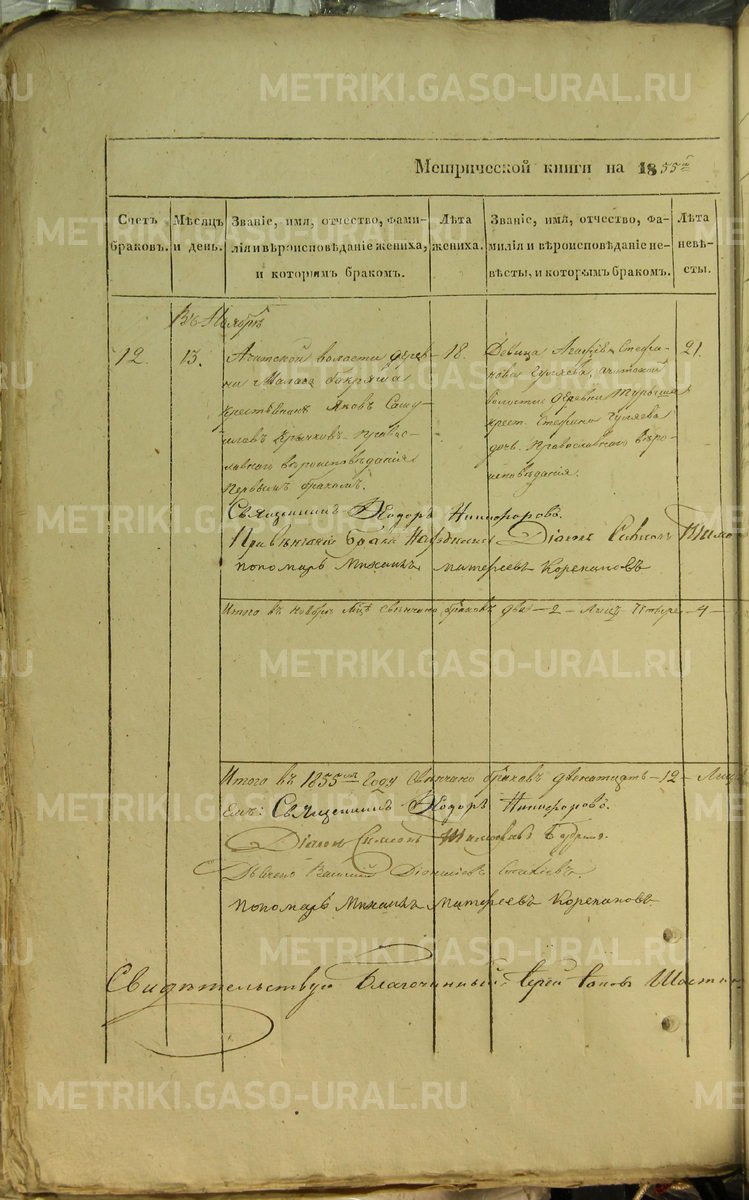 METRIKI.GASO-URAL.RU
Метрической книги на 1855й
Счетъ браковъ.
Мѣсяцъ и день.
Званіе, имя, отчество, фами-
лія и вѣроисповѣданіе жениха,
и которымъ бракомъ.
Лѣта жениха.
Званіе, имя, отчество, фа-
милія и вѣроисповѣданіе не-
вѣсты, и которымъ бракомъ.
Лѣта невѣ-
сты.
Въ Ноябрѣ
12.
13.
Ачитской волости дерев-
ни Малаго
крестьянинъ Яковъ
Крючковъ Правос-
лавнаго вѣроисповѣданія
Первымъ бракомъ.
18.
Девица Агафія Стефа-
нова Гуляева, Ачитской
Волости деревни
крест. Стефана Гуляева
дочь. Православнаго вѣро-
исповѣданія.
21.
Священникъ Ѳеодоръ Никифоровъ.
При вѣнчаніи брака находился Діаконъ
пономарь Михаилъ Матѳеевъ Корепановъ
Итого въ ноябрѣ м҃цѣ свѣнчано браковъ два — 2 — лицъ четыре — 4 —
Итого въ 1855мъ Году свѣнчано браковъ двенатцать — 12 — Лицъ
Священникъ Ѳеодоръ Никифоровъ.
Діаконъ Симеонъ
Дьячекъ Василій Діонисіевъ
пономарь Михаилъ Матѳеевъ Корепановъ.
Свидѣтельствую Благочинный Іерей